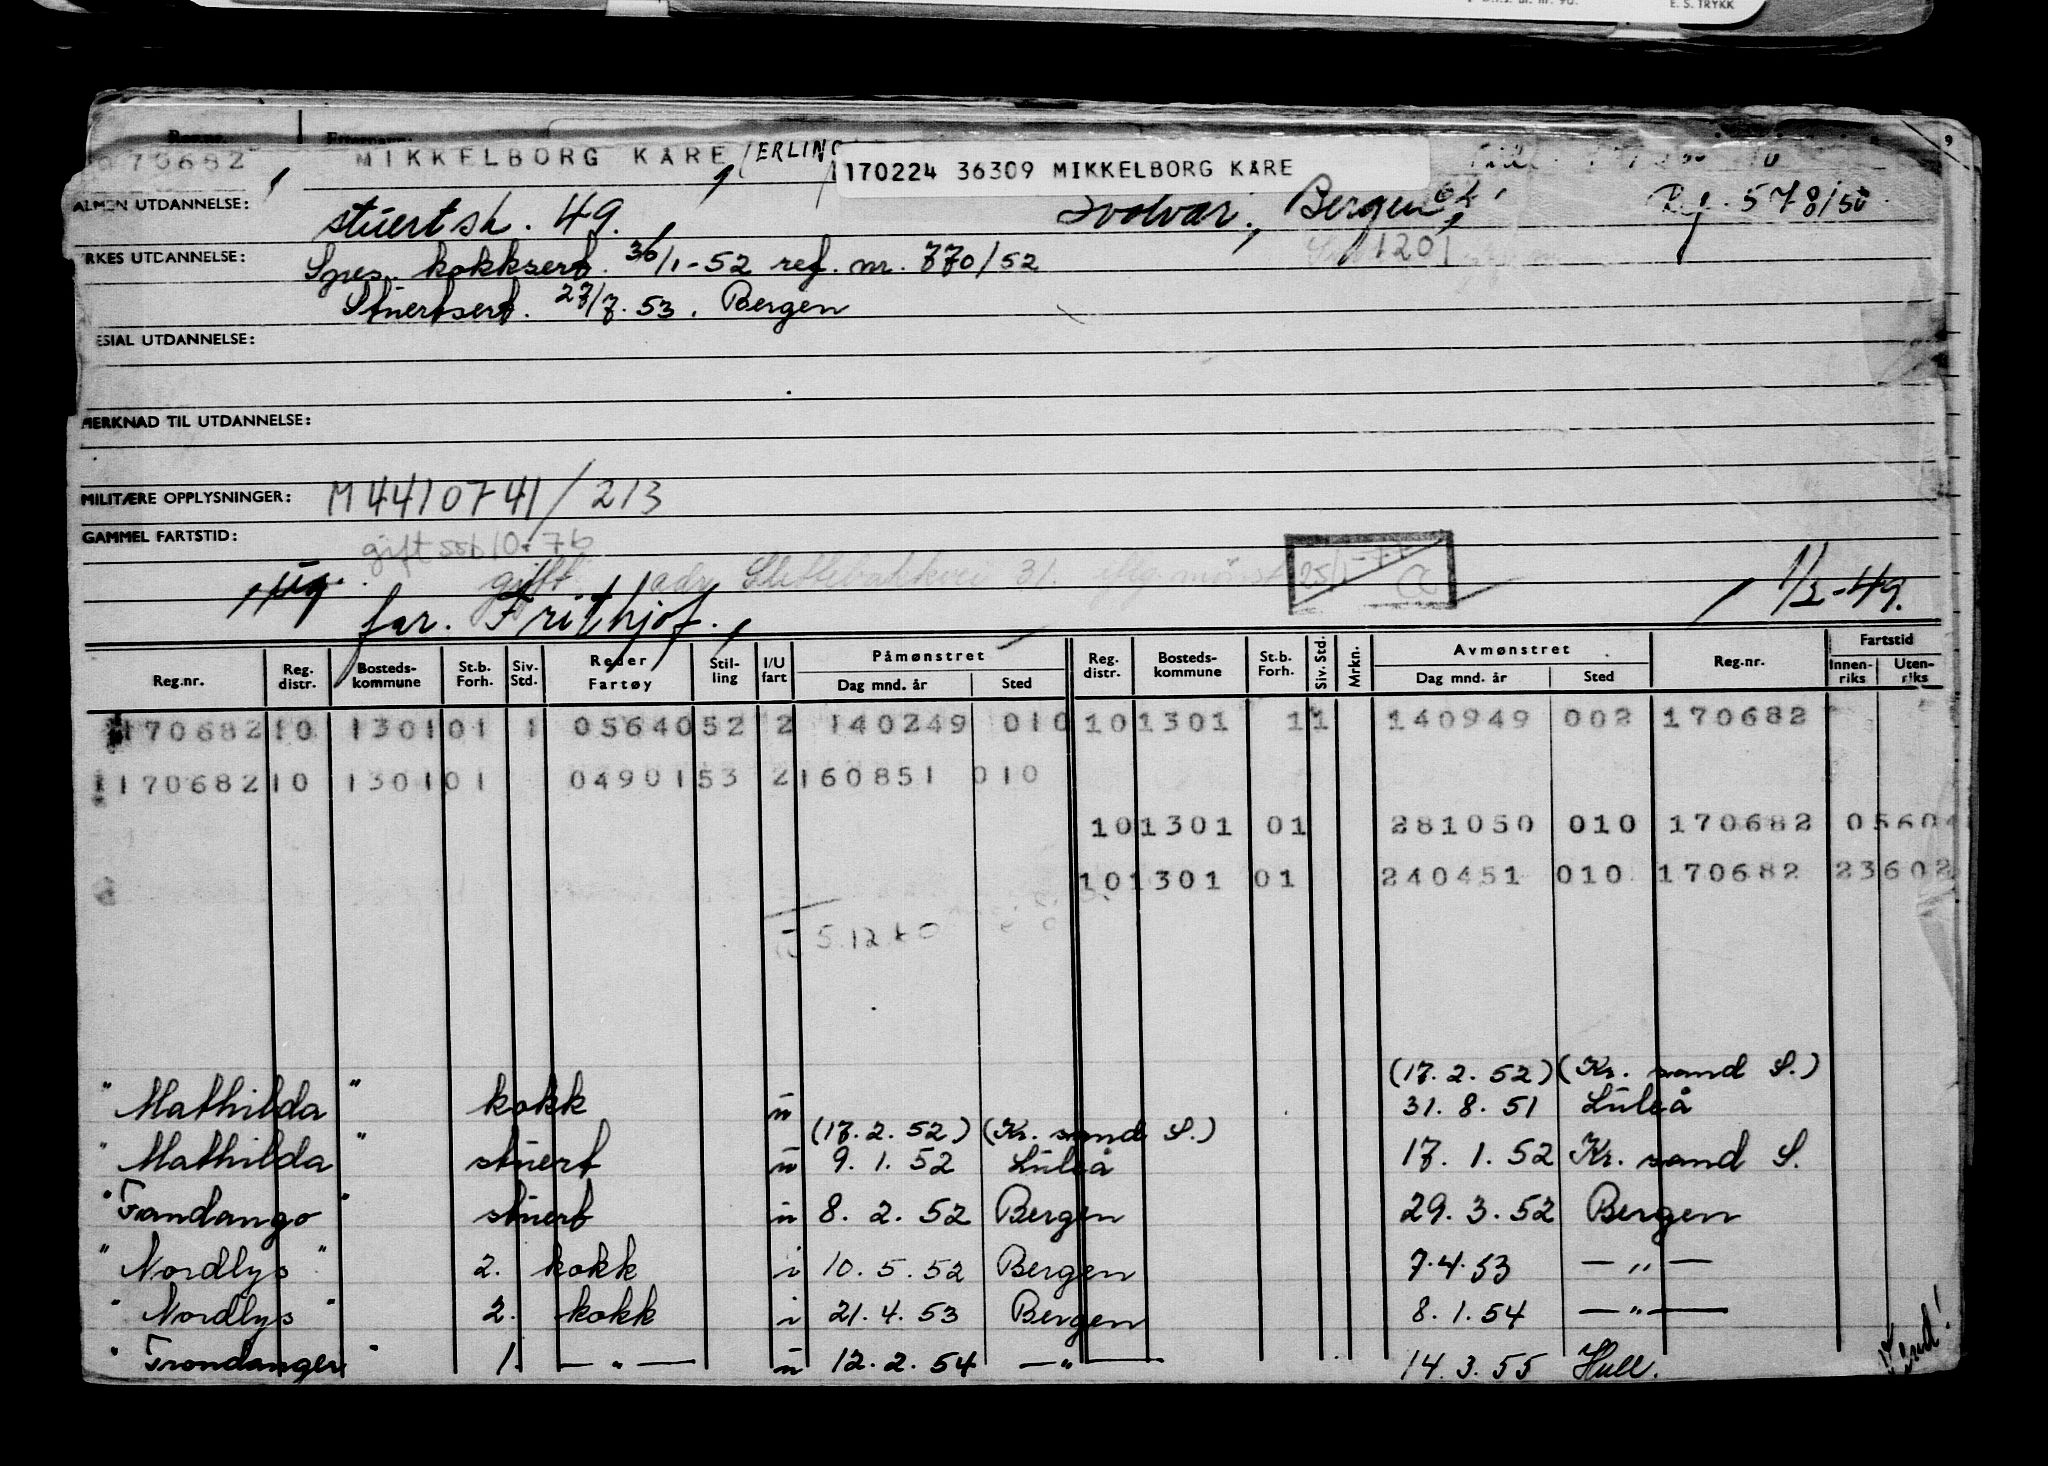 E. S. TRYKK
70682 MIKKELBORG KARE (ERLING 170224 36309 MIKKELBORG KARE
ALMEN UTDANNELSE: stuertsk. 49. Svolvær, Bergen Reg. 578/50
1201
RKES UTDANNELSE: Spes. kokksert. 36/1-52 ref. nr. 770/52
Stuertsert. 27/7.53. Bergen
ESIAL UTDANNELSE:
MERKNAD TIL UTDANNELSE:
MILITÆRE OPPLYSNINGER: M4410741/213
GAMMEL FARTSTID:
ug. gift adr. 31. 1/2-49.
far. Frithjof.
Reg.nr. Reg. distr. Bosteds-kommune St.b. Forh. Siv. Std. Reder Fartøy Stil-ling I/U fart Påmønstret Dag mnd. år Sted Reg. distr. Bosteds-kommune St.b. Forh. Siv. Std. Mrkn. Avmønstret Dag mnd. år Sted Reg.nr. Fartstid Innen-riks Uten-riks
170682 10 1301 01 1 05640 52 2 140249 010 10 1301 1 1 140949 002 170682
170682 10 1301 01 04901 53 2 160851 010
10 1301 01 281050 010 170682 05 60
10 1301 01 240451 010 170682 23 602
(17.2.52) (Kr. sand S.)
" Mathilda " kokk u 31.8.51 Luleå
(17.2.52) (Kr. sand S.)
" Mathilda " stuert u 9.1.52 Luleå 17.1.52 Kr. sand S.
" Fandango " stuert u 8.2.52 Bergen 29.3.52 Bergen
" Nordlys " 2. kokk i 10.5.52 Bergen 7.4.53 — " —
" Nordlys " 2. kokk i 21.4.53 Bergen 8.1.54 — " —
" Trondanger " 1. — " — u 12.2.54 — " — 14.3.55 Hull.
Vend!